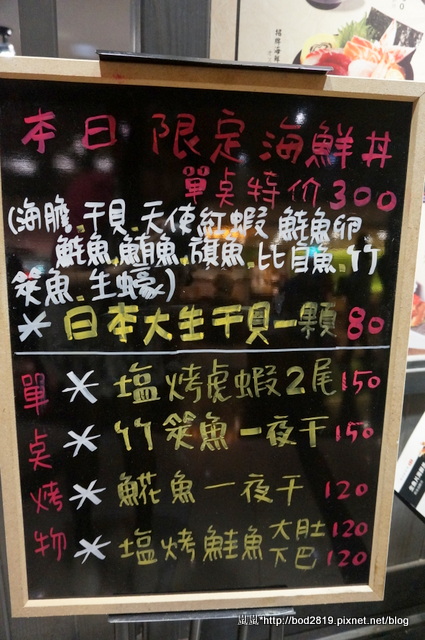 本日限定海鮮丼
單桌特价300
(海膽.干貝.天使紅蝦.鮭魚卵
鮭魚.鮪魚.旗魚.比目魚.竹
筴魚.生蠔)
*日本大生干貝一顆80
單桌烤物
*塩烤虎蝦2尾150
*竹筴魚一夜干150
*鯡魚一夜干120
*塩烤鮭魚大肚120
下巴120
嵐嵐*http://bod2819.pixnet.net/blog